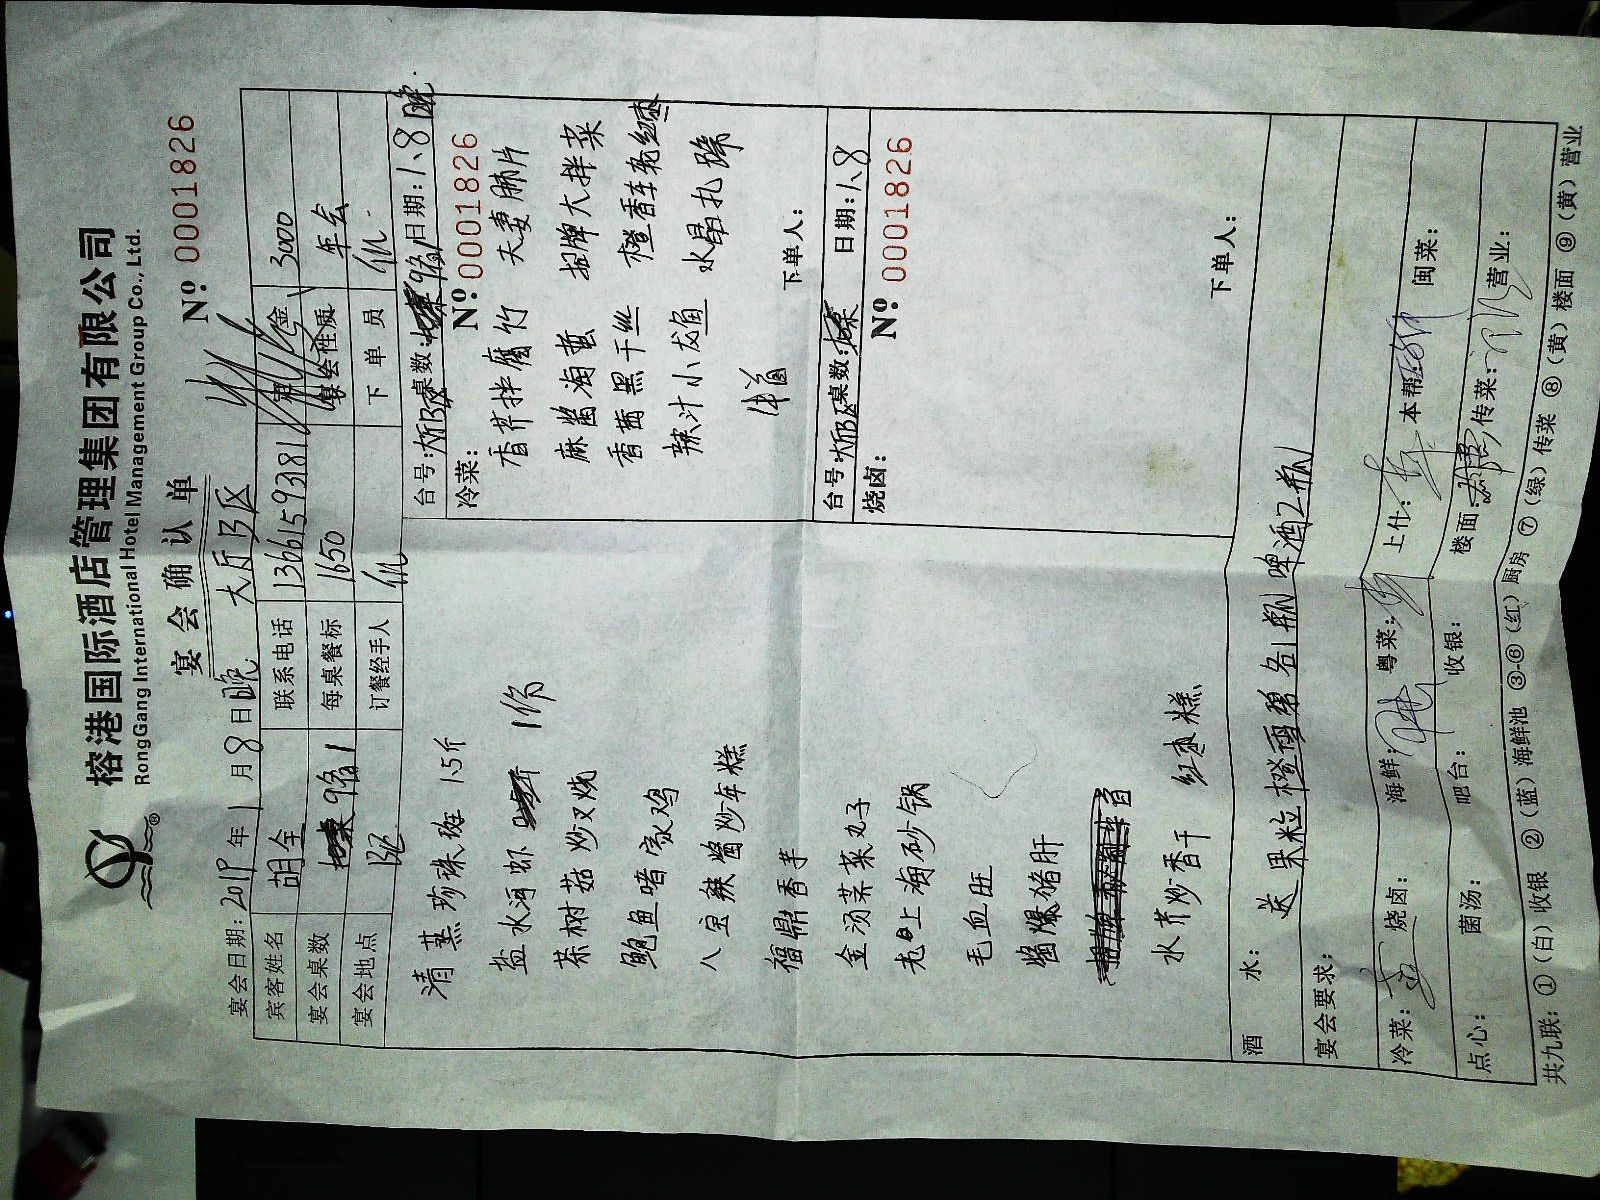 榕港国际酒店管理集团有限公司
RongGang International Hotel Management Group Co., Ltd.
宴会确认单
Nº: 0001826
宴会日期: 2019年 1月8日晚 大厅B区
宾客姓名 胡全 联系电话 13661593811 金 3000
宴会桌数 9备1 每桌餐标 1650 宴会性质 年会
宴会地点 订餐经手人 下单员
清蒸珍珠斑 1.5斤
盐水河虾 1份
茶树菇炒叉烧
鲍鱼啫家鸡
八宝辣酱炒年糕
福鼎香芋
金汤菜菜丸子
老上海砂锅
毛血旺
酱爆猪肝
水芹炒香干 红枣糕
台号: 大厅B区 桌数: 9备1 日期: 1.8晚
冷菜: Nº: 0001826
香芹拌腐竹 夫妻肺片
麻酱海蜇 招牌大拌菜
香茜黑干丝 橙香车轮红枣
辣汁小龙鱼 水晶扎蹄
下单人:
台号: 大厅B区 桌数: 日期: 1.8
烧卤: Nº: 0001826
下单人:
酒水: 送果粒橙雪碧各1瓶 啤酒2瓶
宴会要求:
冷菜: 烧卤: 海鲜: 粤菜: 上什: 本帮: 闽菜:
点心: 菌汤: 吧台: 收银: 楼面: 传菜: 营业:
共九联: ①(白)收银 ②(蓝)海鲜池 ③-⑥(红)厨房 ⑦(绿)传菜 ⑧(黄)楼面 ⑨(黄)营业